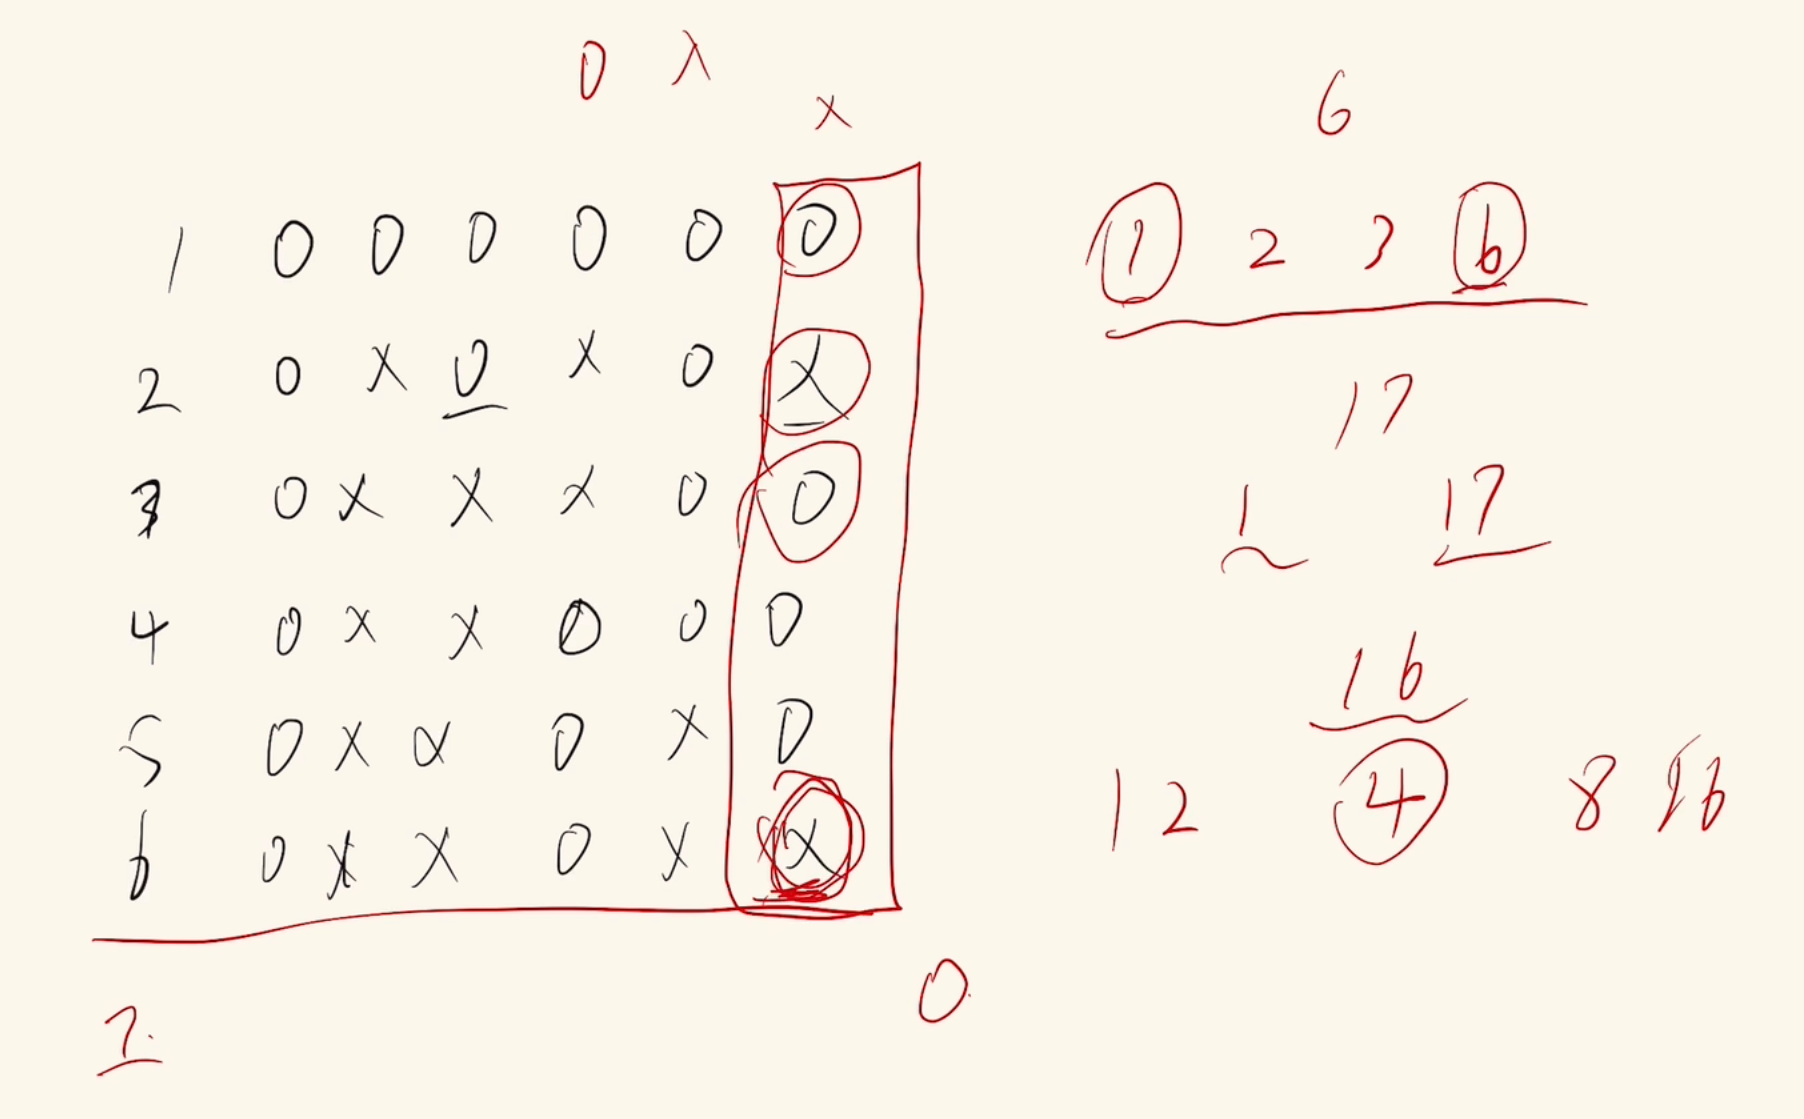 0 x
x
1 0 0 0 0 0 0
2 0 x 0 x 0 x
3 0 x x x 0 0
4 0 x x 0 0 0
5 0 x x 0 x 0
6 0 x x 0 x x
7.
0
6
1 2 3 6
17
1 17
16
1 2 4 8 16